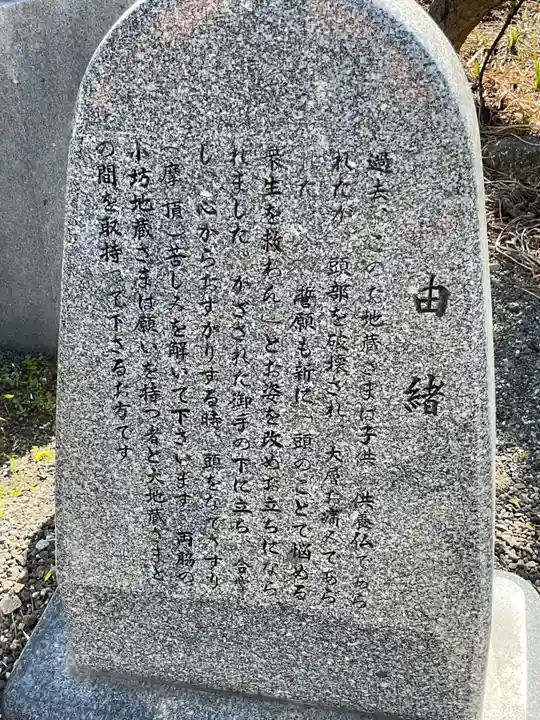 由緒
過去、このお地蔵さまは子供 供養仏であら
れたが 頭部を破壊され、大層お痛みであら
した 誓願も新に「頭のことで悩める
衆生を救わん」とお姿を改めお立ちになら
れました かざされた御手の下に立ち 合掌
し、心からおすがりする時、頭をなでさすり
(摩頂)苦しみを解いて下さいます 両脇の
小坊地蔵さまは願いを持つ者と大地蔵さまと
の間を取持って下さるお方です